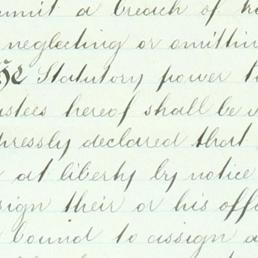 mmit a breach of
neglecting or omittin
The Statutory power to
ustees hereof shall be
pressly declared that
at liberty by notice
sign their or his offi
bound to assign a